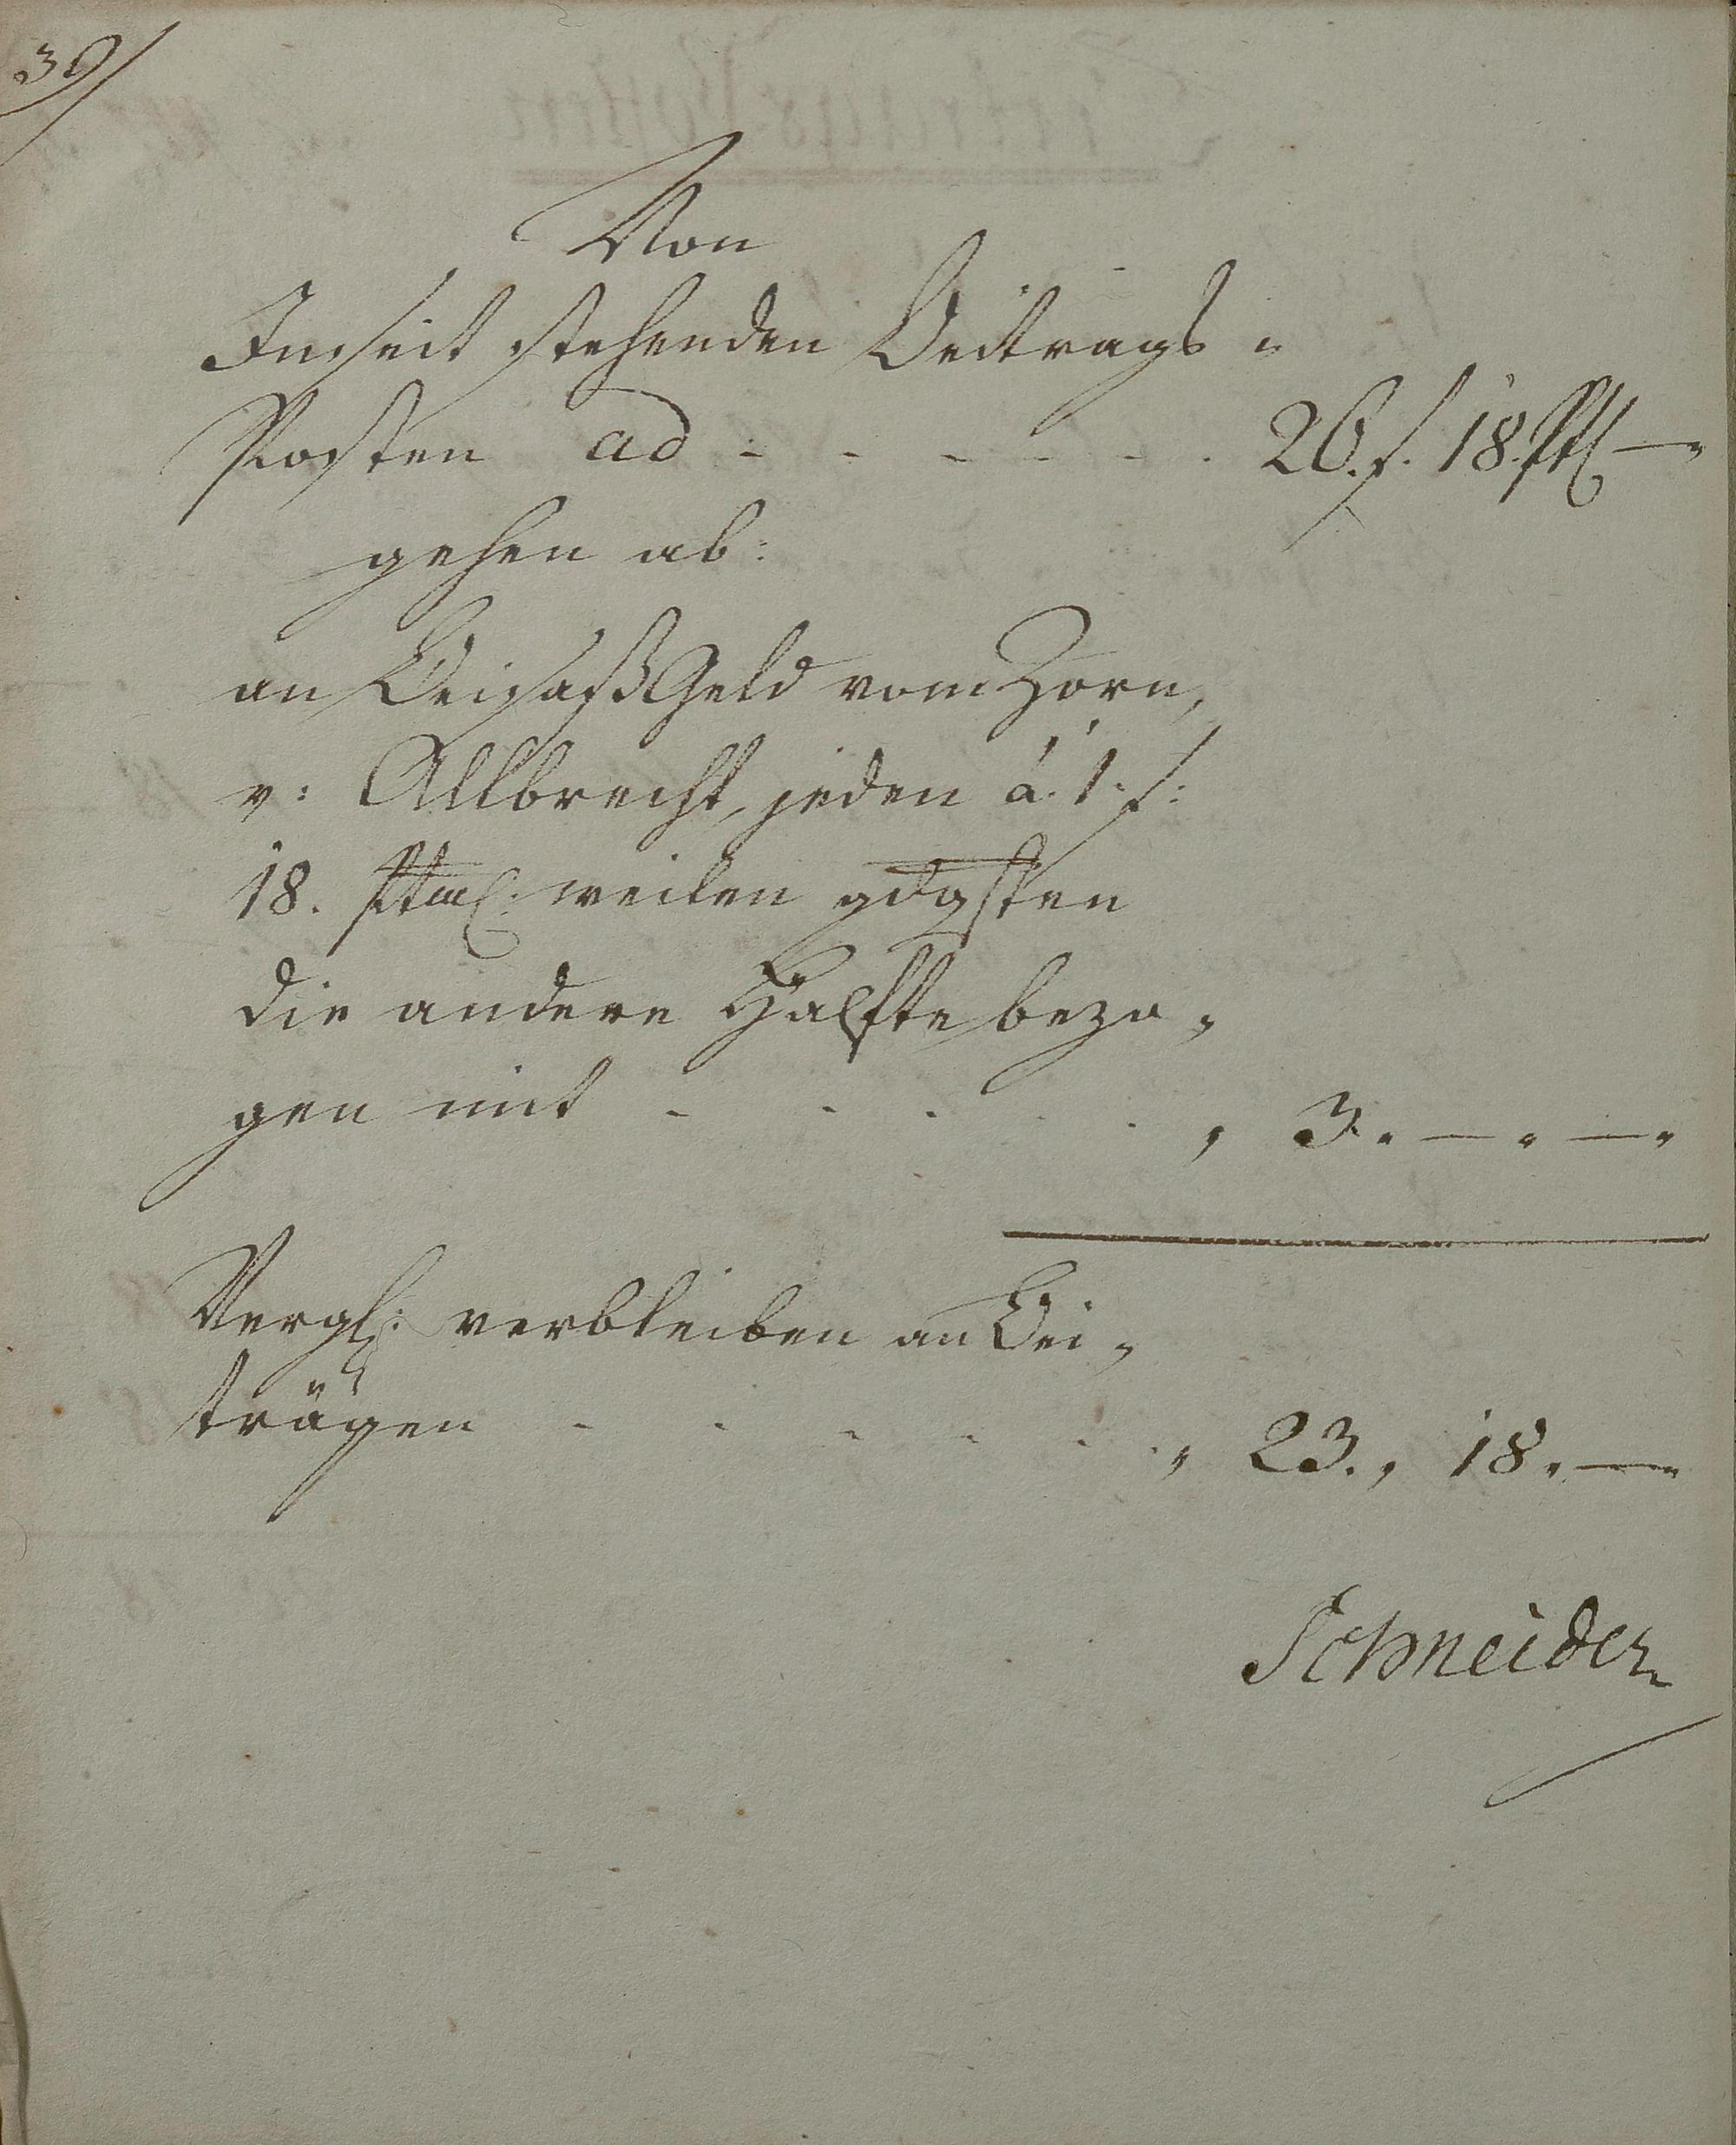 Von
Jenseit stehenden Beitrags-
Posten ad - - - - - - 26. f. 18. Stl —
gehen ab:
an Beisaß Geld vom Zorn,
v: Allbrecht, jeden á. 1. f:
18. weilen gdgsten
die andere Hälfte bezo-
gen mit - - - - - , 3. — . — .
Vergl: verbleiben an Bei-
trägen - - - - - - , 23. , 18. —
Schneider